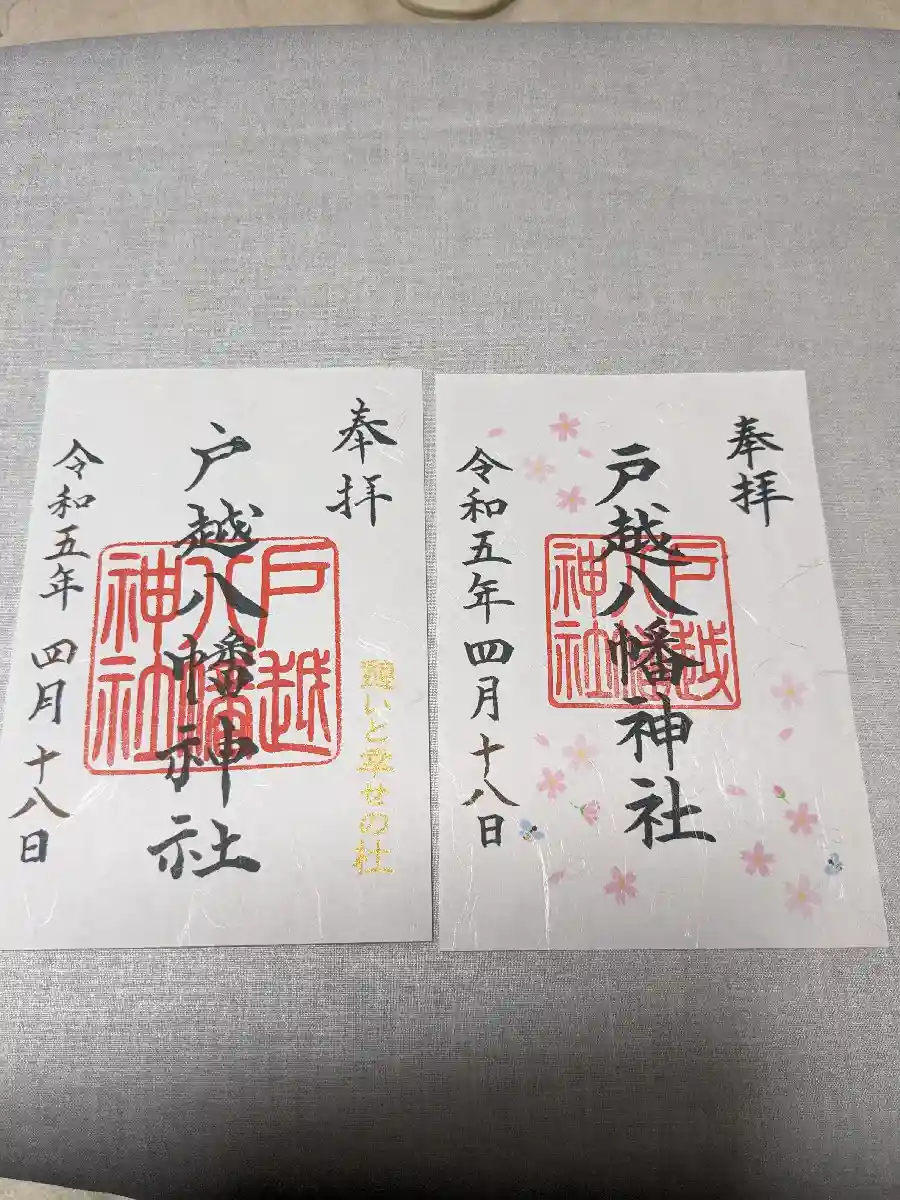 奉拝
戸越八幡神社
戸越八幡神社
憩いと幸せの杜
令和五年 四月 十八日
奉拝
戸越八幡神社
戸越八幡神社
令和五年 四月 十八日